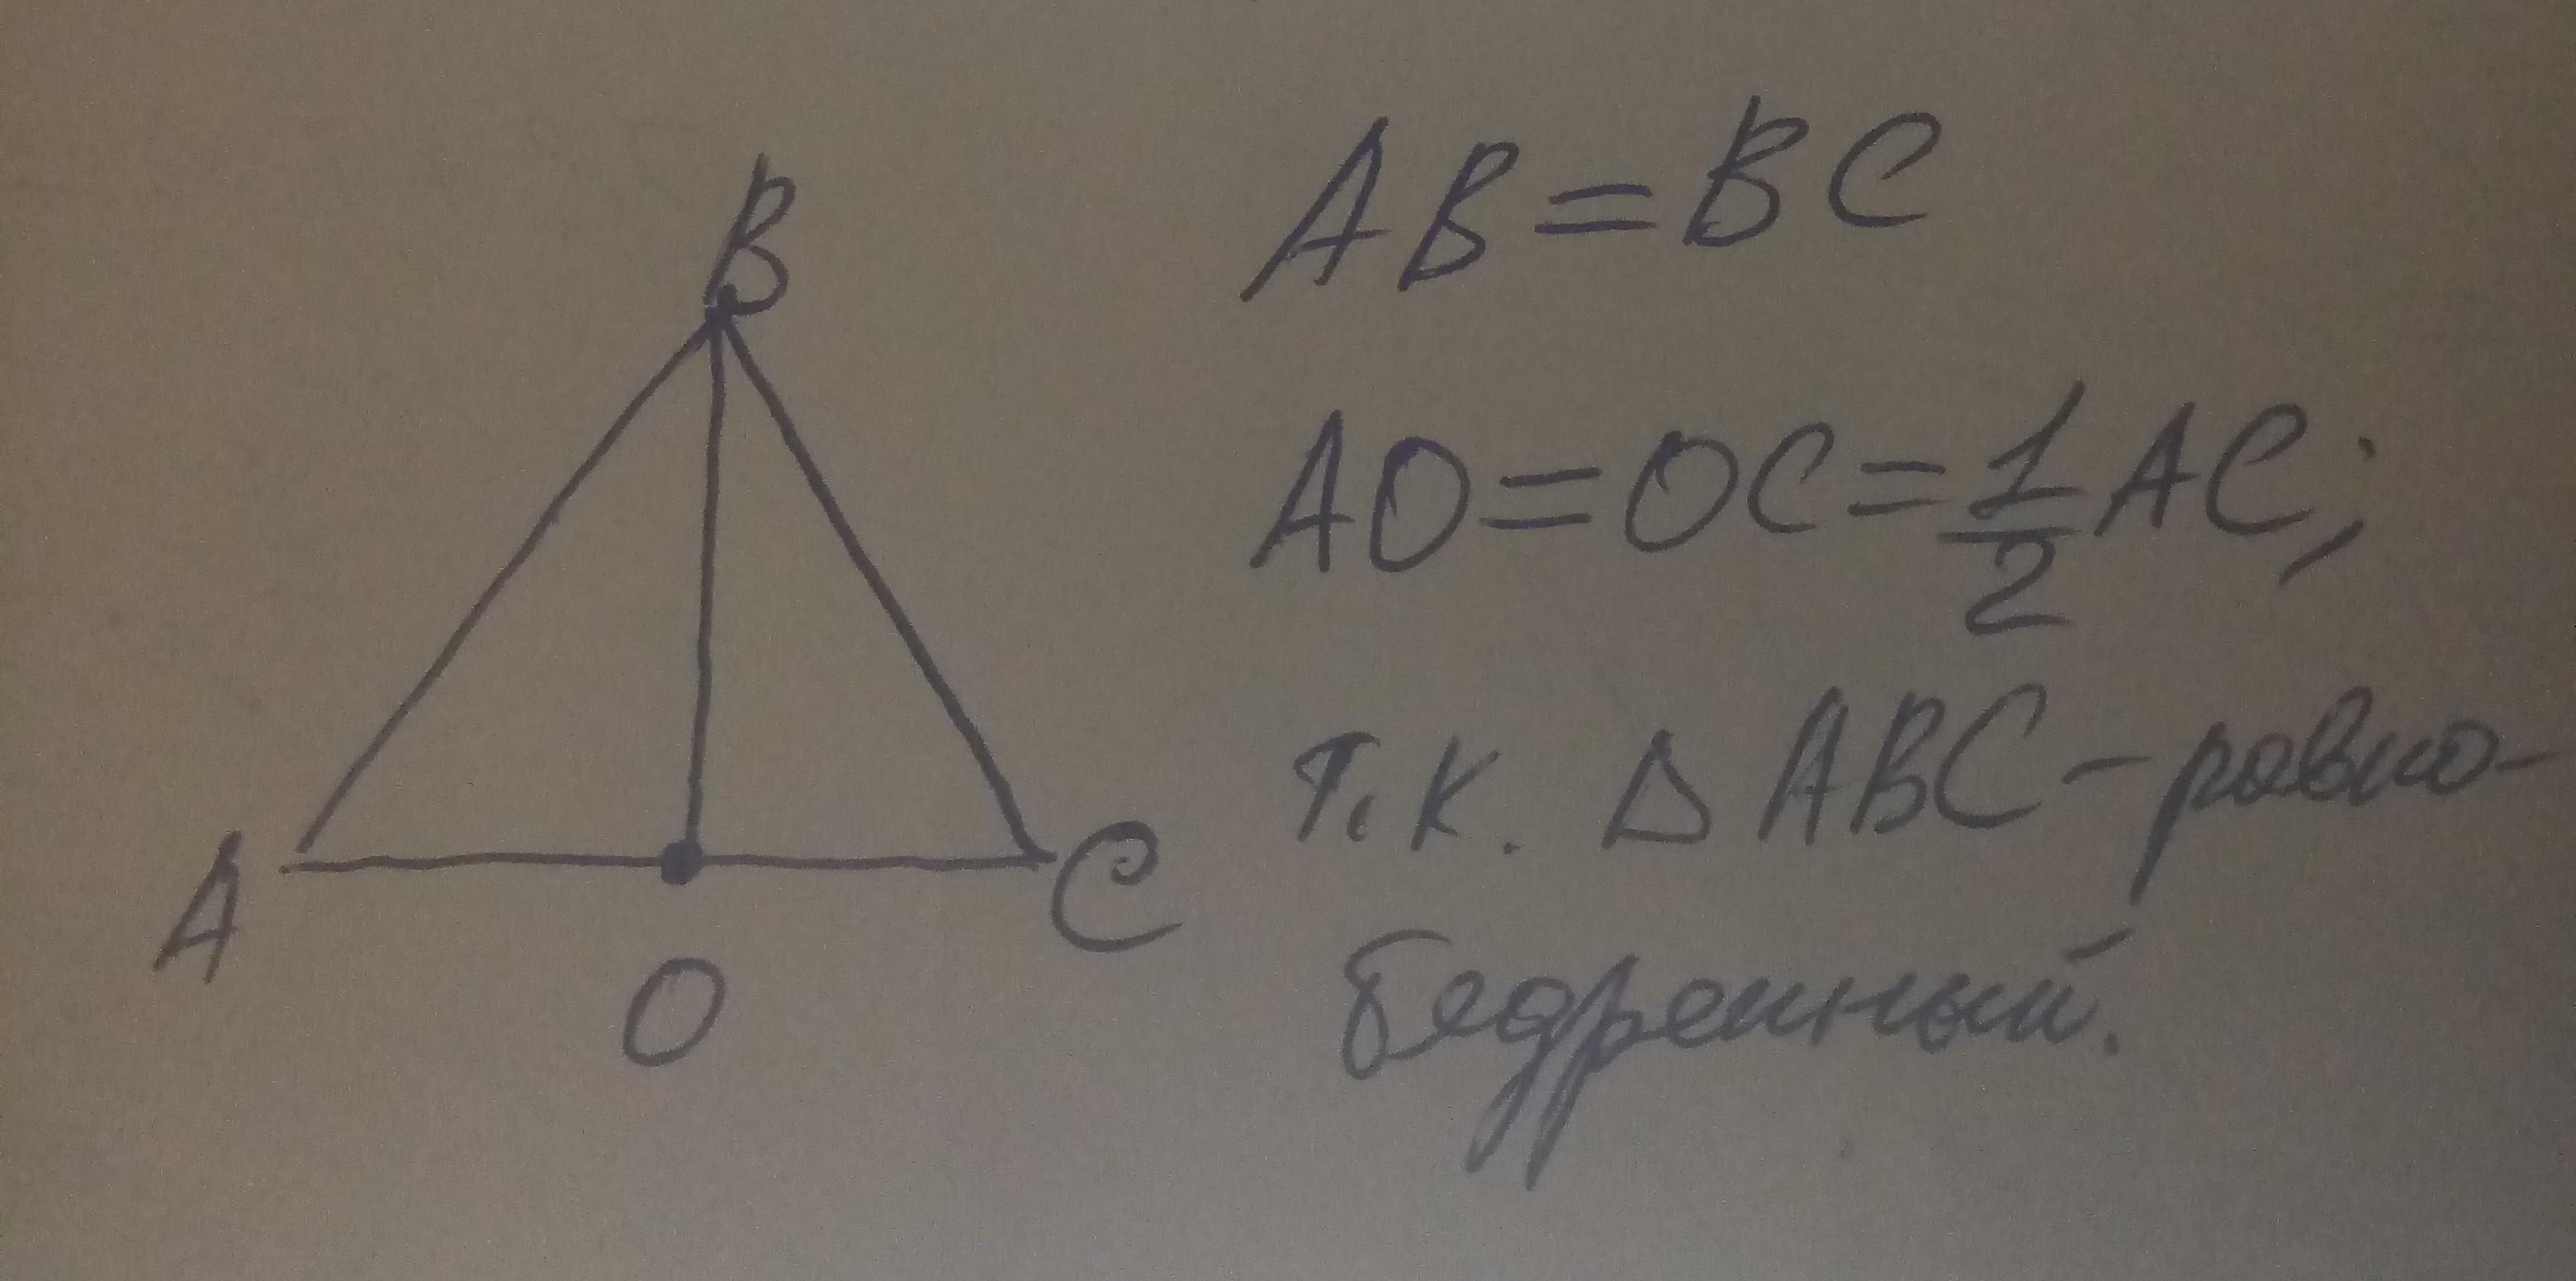 B
A
C
O
AB=BC
AO=OC=1/2 AC;
т.к. △ABC-равно-
бедренный.